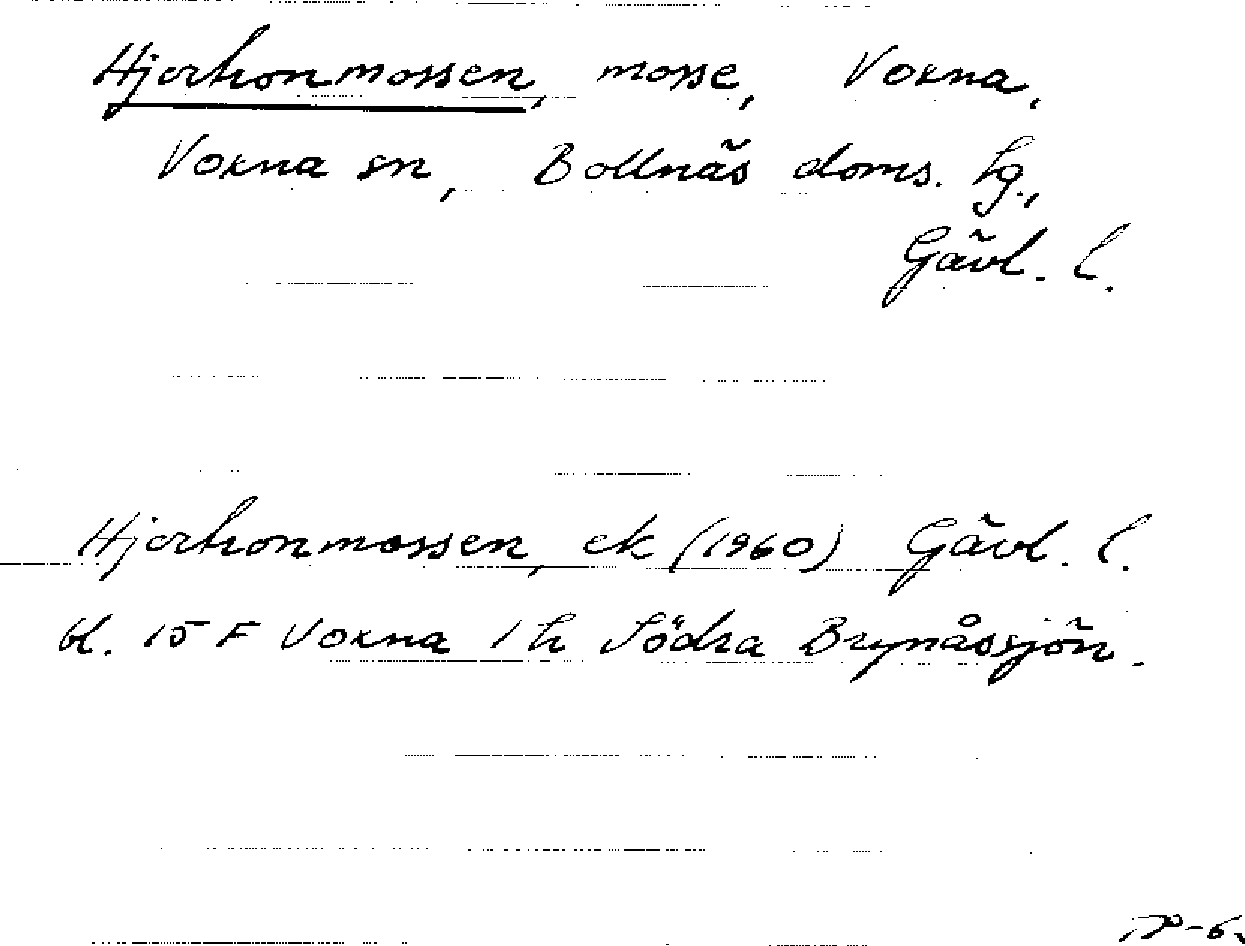 Hjortronmossen, mosse, Voxna,
Voxna sn, Bollnäs doms. tg.,
Gävl. l.
Hjortronmossen, ek (1960) Gävl. l.
bl. 15 F Voxna 1 h Södra Brynåssjön.